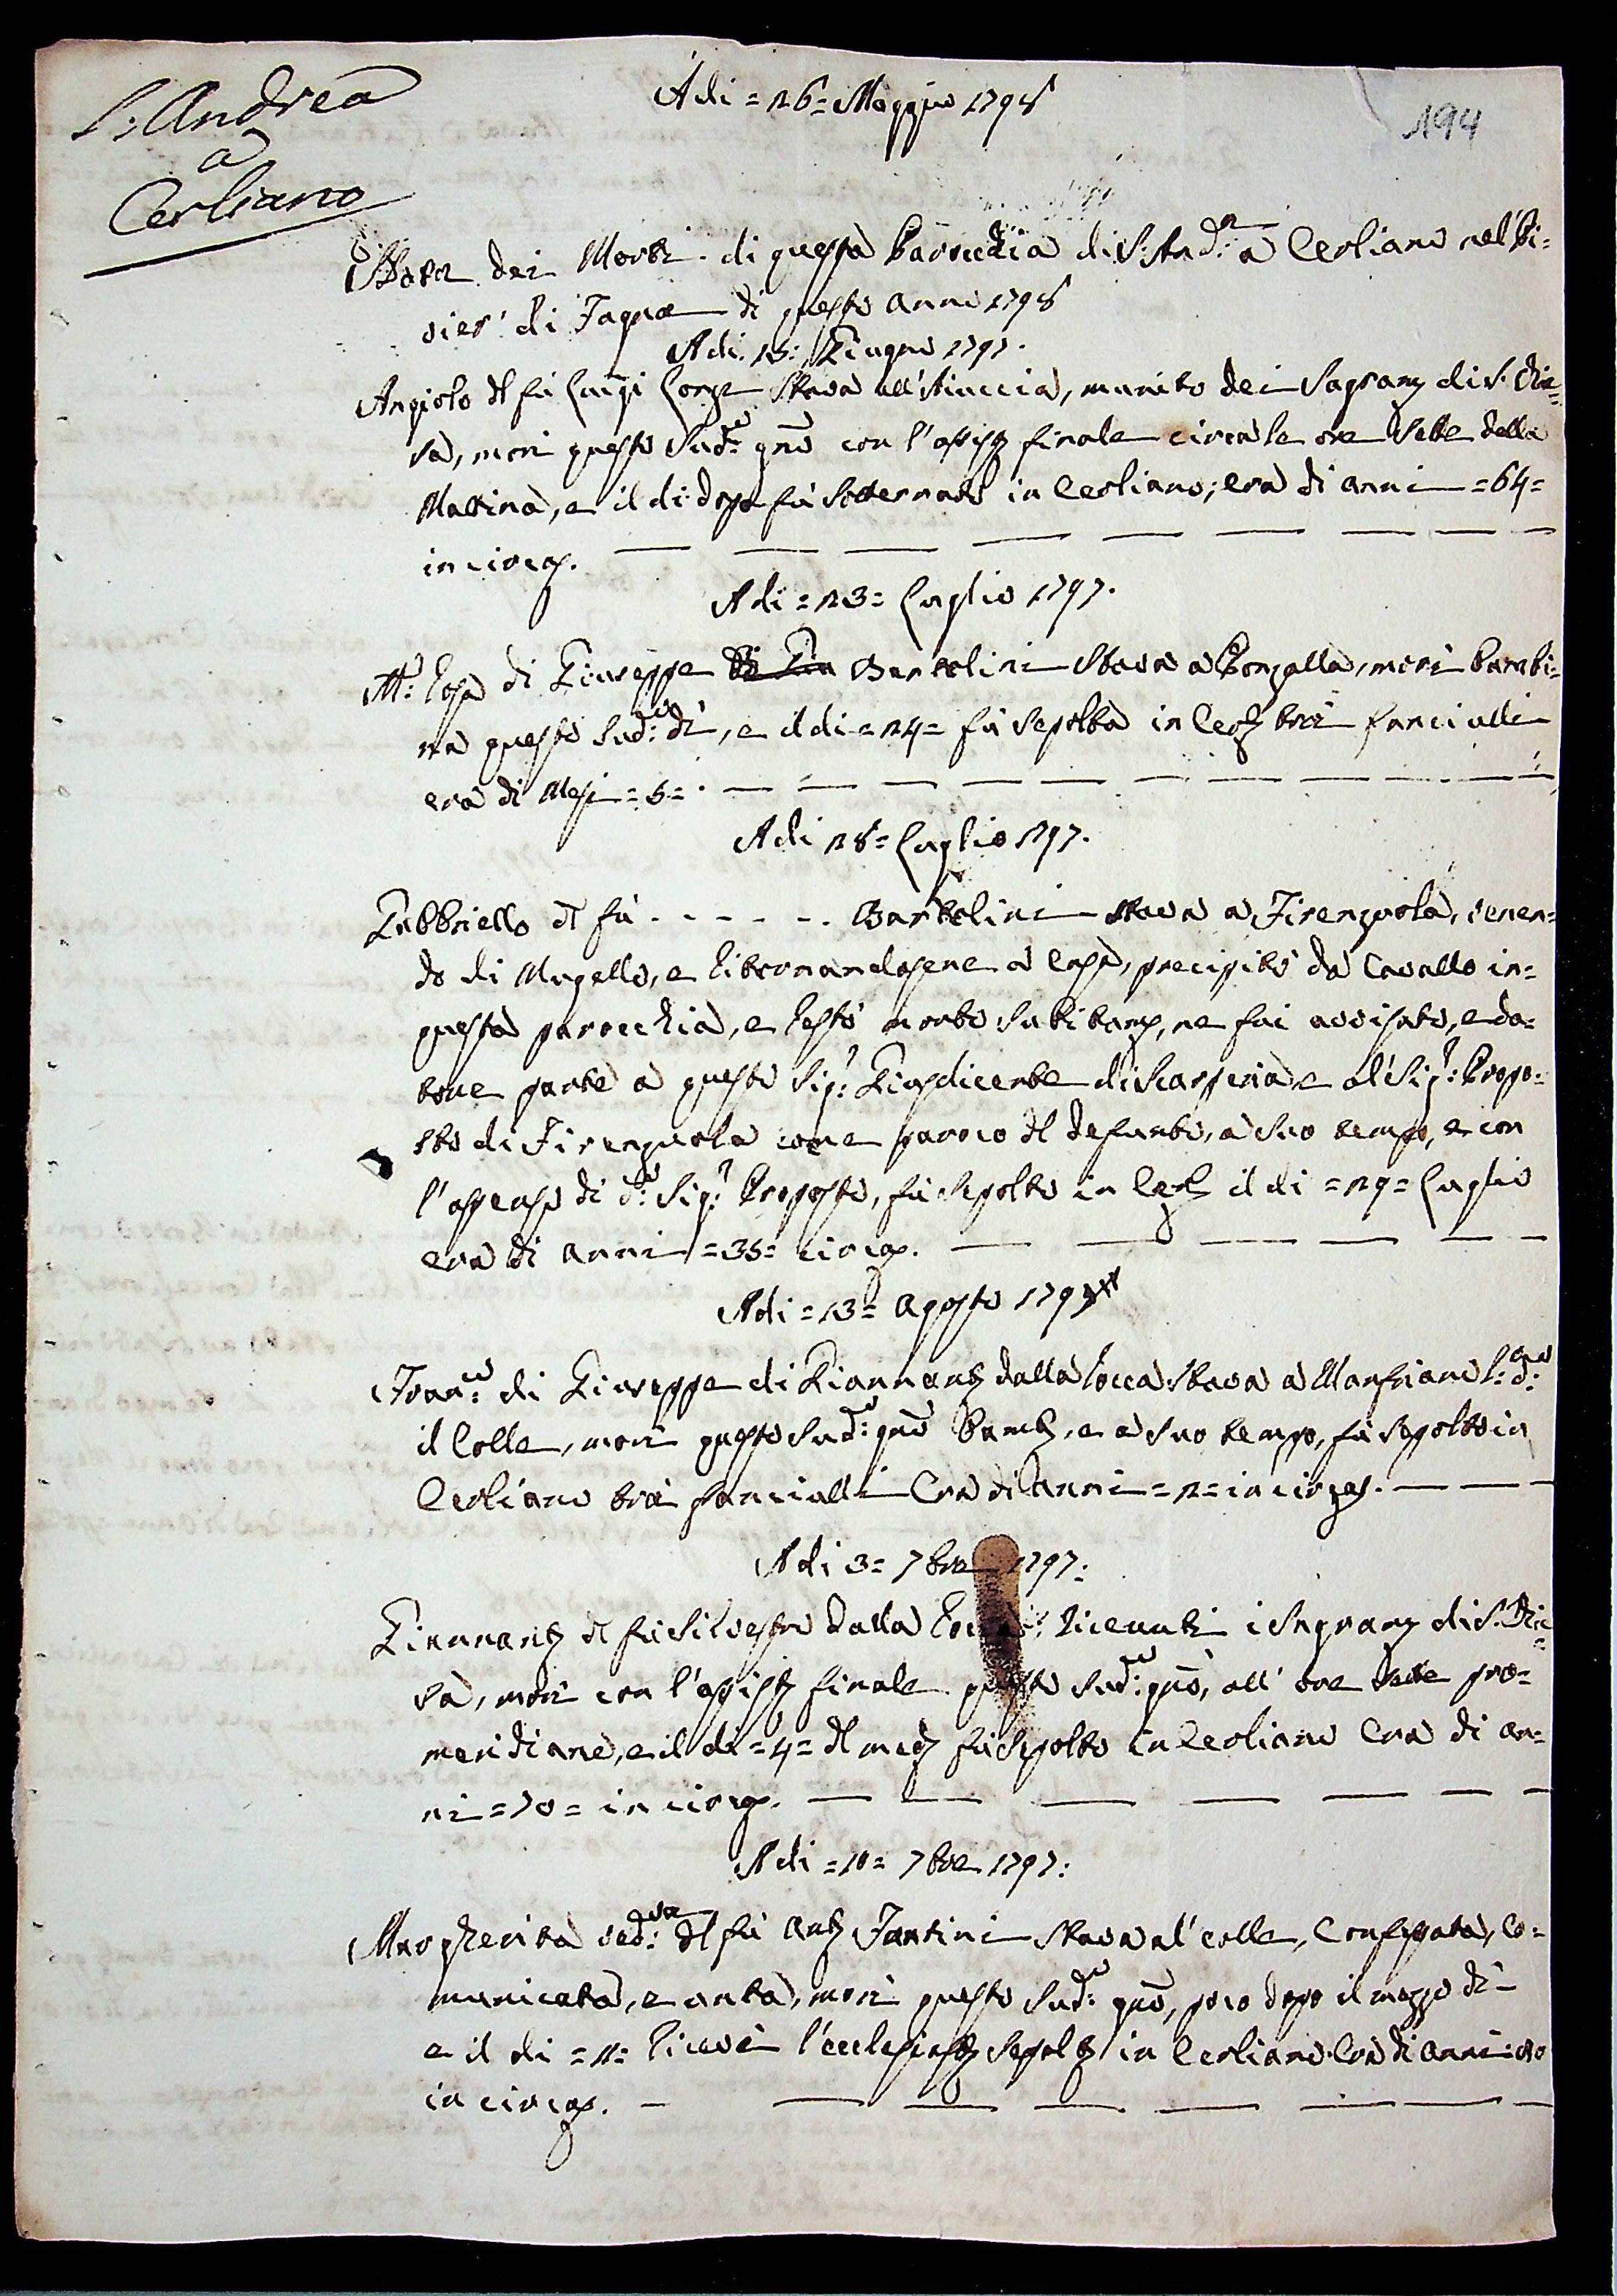 S: Andrea
a
Cerliano
Adi = 26 = Maggio 1798
194
Stato dei Morti di questa Parrocchia di S: And:ª a Cerliano nel Pi=
vier' di Fagna di questo anno 1798
Adi: 15: Giugno 1797.
Angiolo dl fù Luigi stava all' munito dei Sagram di S. Chie=
sa, morì questo Sud:º gnõ con l'assist finale circa le ore sette della
Mattina, e il di dopo fù sotterrato in Cerliano; era di anni = 64 =
in circa.
Adi = 23 = Luglio 1797.
M: Rosa di Giuseppe Bartolini stava a morì bambi=
na questo Sud:º di, e il di = 24 = fù sepolta in Cerl trà fanciulli
era di Mesi = 5 =.
Adi 28 = Luglio 1797.
Gabbriello dl fù - - - - - Bartolini stava a Firenzuola, venen=
do di Mugello, e ritornandosene a Casa, precipitò da Cavallo in=
questa parocchia, e restò morto subitam, ne fui avvisato, e da=
tone parte a questo Sig:r Giusdicente di Scarperia, e al Sig:r Propo=
sto di Firenzuola come paroco dl defunto, a suo tempo, e con
l'assenso di d:º Sig:r Proposto, fù sepolto in Cerl il di = 29 = Luglio
era di anni = 35 = circa.
Adi = 13 = Agosto 1797
Fran:co di Giuseppe di Giannant dalla Rocca stava a Manfriano l: d:º
il Colle, morì questo Sud:º gnõ Bamb, e a suo tempo, fù sepolto in
Cerliano trà fanciulli Era di Anni = 2 = in circa.
Adi 3 = 7bre 1797:
Giannant dl fù Silvestro dalla Rocca: ricevuti i Sagram di S. Chie=
sa, morì con l'assist finale questo Sud:º gnõ, all' ore sette pro=
meridiane, e il di = 4 = dl med fù sepolto in Cerliano Era di an=
ni = 70 = in circa.
Adi = 10 = 7bre 1797:
Margherita ved:va dl fù Ant Fantini stava al' colle, Confessata, Co=
municata, e unta, morì questo Sud:º gnõ, poco dopo il mezzo di
e il di = 11 = ricevè l'ecclesiast sepolt in Cerliano. Era di anni:
in circa.